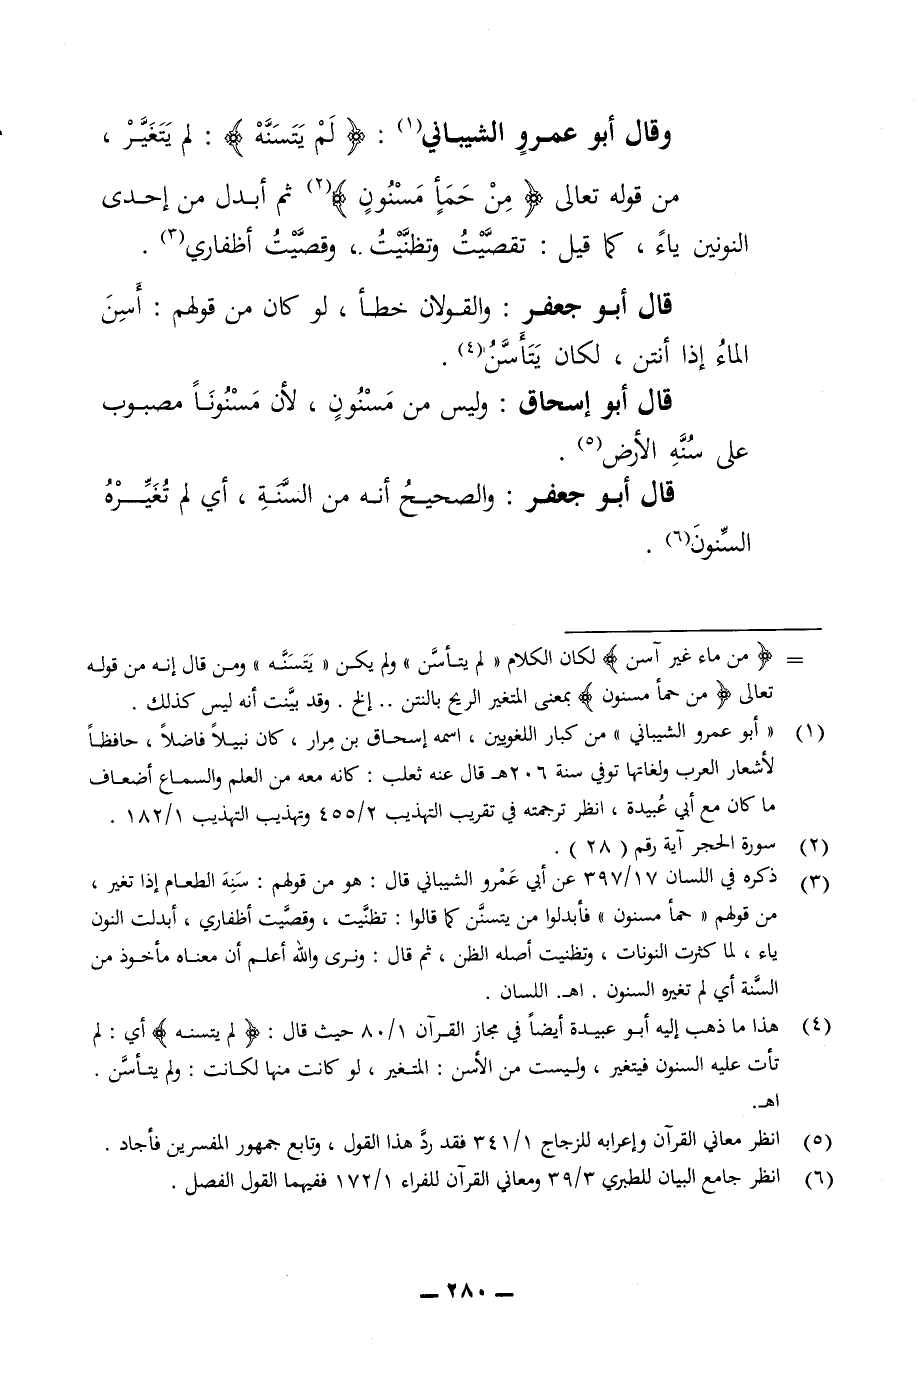 وقال أبو عمـروٍ الشيباني(١) : ﴿ لَمْ يَتَسَنَّهْ ﴾ : لم يَتَغَيَّـرْ ،
من قوله تعالى ﴿ مِنْ حَمَأٍ مَسْنُونٍ ﴾(٢) ثم أبـدل من إحـدى
النونين ياءً ، كما قيل : تقصَّيْتُ وتظنَّيْتُ ، وقصَّيْتُ أظفاري(٣) .
قال أبـو جعفـر : والقـولان خطـأ ، لو كان من قولهم : أَسِنَ
الماءُ إذا أنتن ، لكان يَتَأَسَّنُ(٤) .
قال أبو إسحاق : وليس من مَسْنُونٍ ، لأن مَسْنُونَـاً مصبـوب
على سُنَّهِ الأرض(٥) .
قال أبـو جعفـر : والصحيـحُ أنـه من السَّنَـةِ ، أي لم تُغَيِّـرْهُ
السِّنونَ(٦) .
= ﴿ من ماء غير آسن ﴾ لكان الكلام « لم يتـأسَّن » ولم يكـن « يَتَسَنَّـه » ومـن قال إنـه من قولـه
تعالى ﴿ من حمأ مسنون ﴾ بمعنى المتغير الريح بالنتن .. إلخ . وقد بيَّنت أنه ليس كذلك .
(١) « أبو عمرو الشيباني » من كبار اللغويين ، اسمه إسحـاق بن مِرار ، كان نبيـلاً فاضلاً ، حافظـاً
لأشعار العرب ولغاتها توفي سنة ٢٠٦هـ قال عنه ثعلب : كانه معه من العلم والسمـاع أضعـاف
ما كان مع أبي عُبيدة ، انظر ترجمته في تقريب التهذيب ٤٥٥/٢ وتهذيب التهذيب ١٨٢/١ .
(٢) سورة الحجر آية رقم ( ٢٨ ) .
(٣) ذكره في اللسان ٣٩٧/١٧ عن أبي عَمْرو الشيباني قال : هو من قولهم : سَنِهَ الطعـام إذا تغير ،
من قولهم « حمأ مسنون » فأبدلوا من يتسنَّن كما قالوا : تظنَّيت ، وقصَّيت أظفاري ، أبدلت النون
ياء ، لما كثرت النونات ، وتظنيت أصله الظن ، ثم قال : ونـرى والله أعلـم أن معنـاه مأخـوذ من
السَّنة أي لم تغيره السنون . اهـ. اللسان .
(٤) هذا ما ذهب إليه أبـو عبيـدة أيضـاً في مجاز القـرآن ٨٠/١ حيث قال : ﴿ لم يتسنـه ﴾ أي : لم
تأت عليه السنون فيتغير ، ولـيست من الأسن : المتـغير ، لو كانت منها لكـانت : ولم يتـأسَّن .
اهـ.
(٥) انظر معاني القرآن وإعرابه للزجاج ٣٤١/١ فقد ردَّ هذا القول ، وتابع جمهور المفسرين فأجاد .
(٦) انظر جامع البيان للطبري ٣٩/٣ ومعاني القرآن للفراء ١٧٢/١ ففيهما القول الفصل .
ـ ٢٨٠ ـ